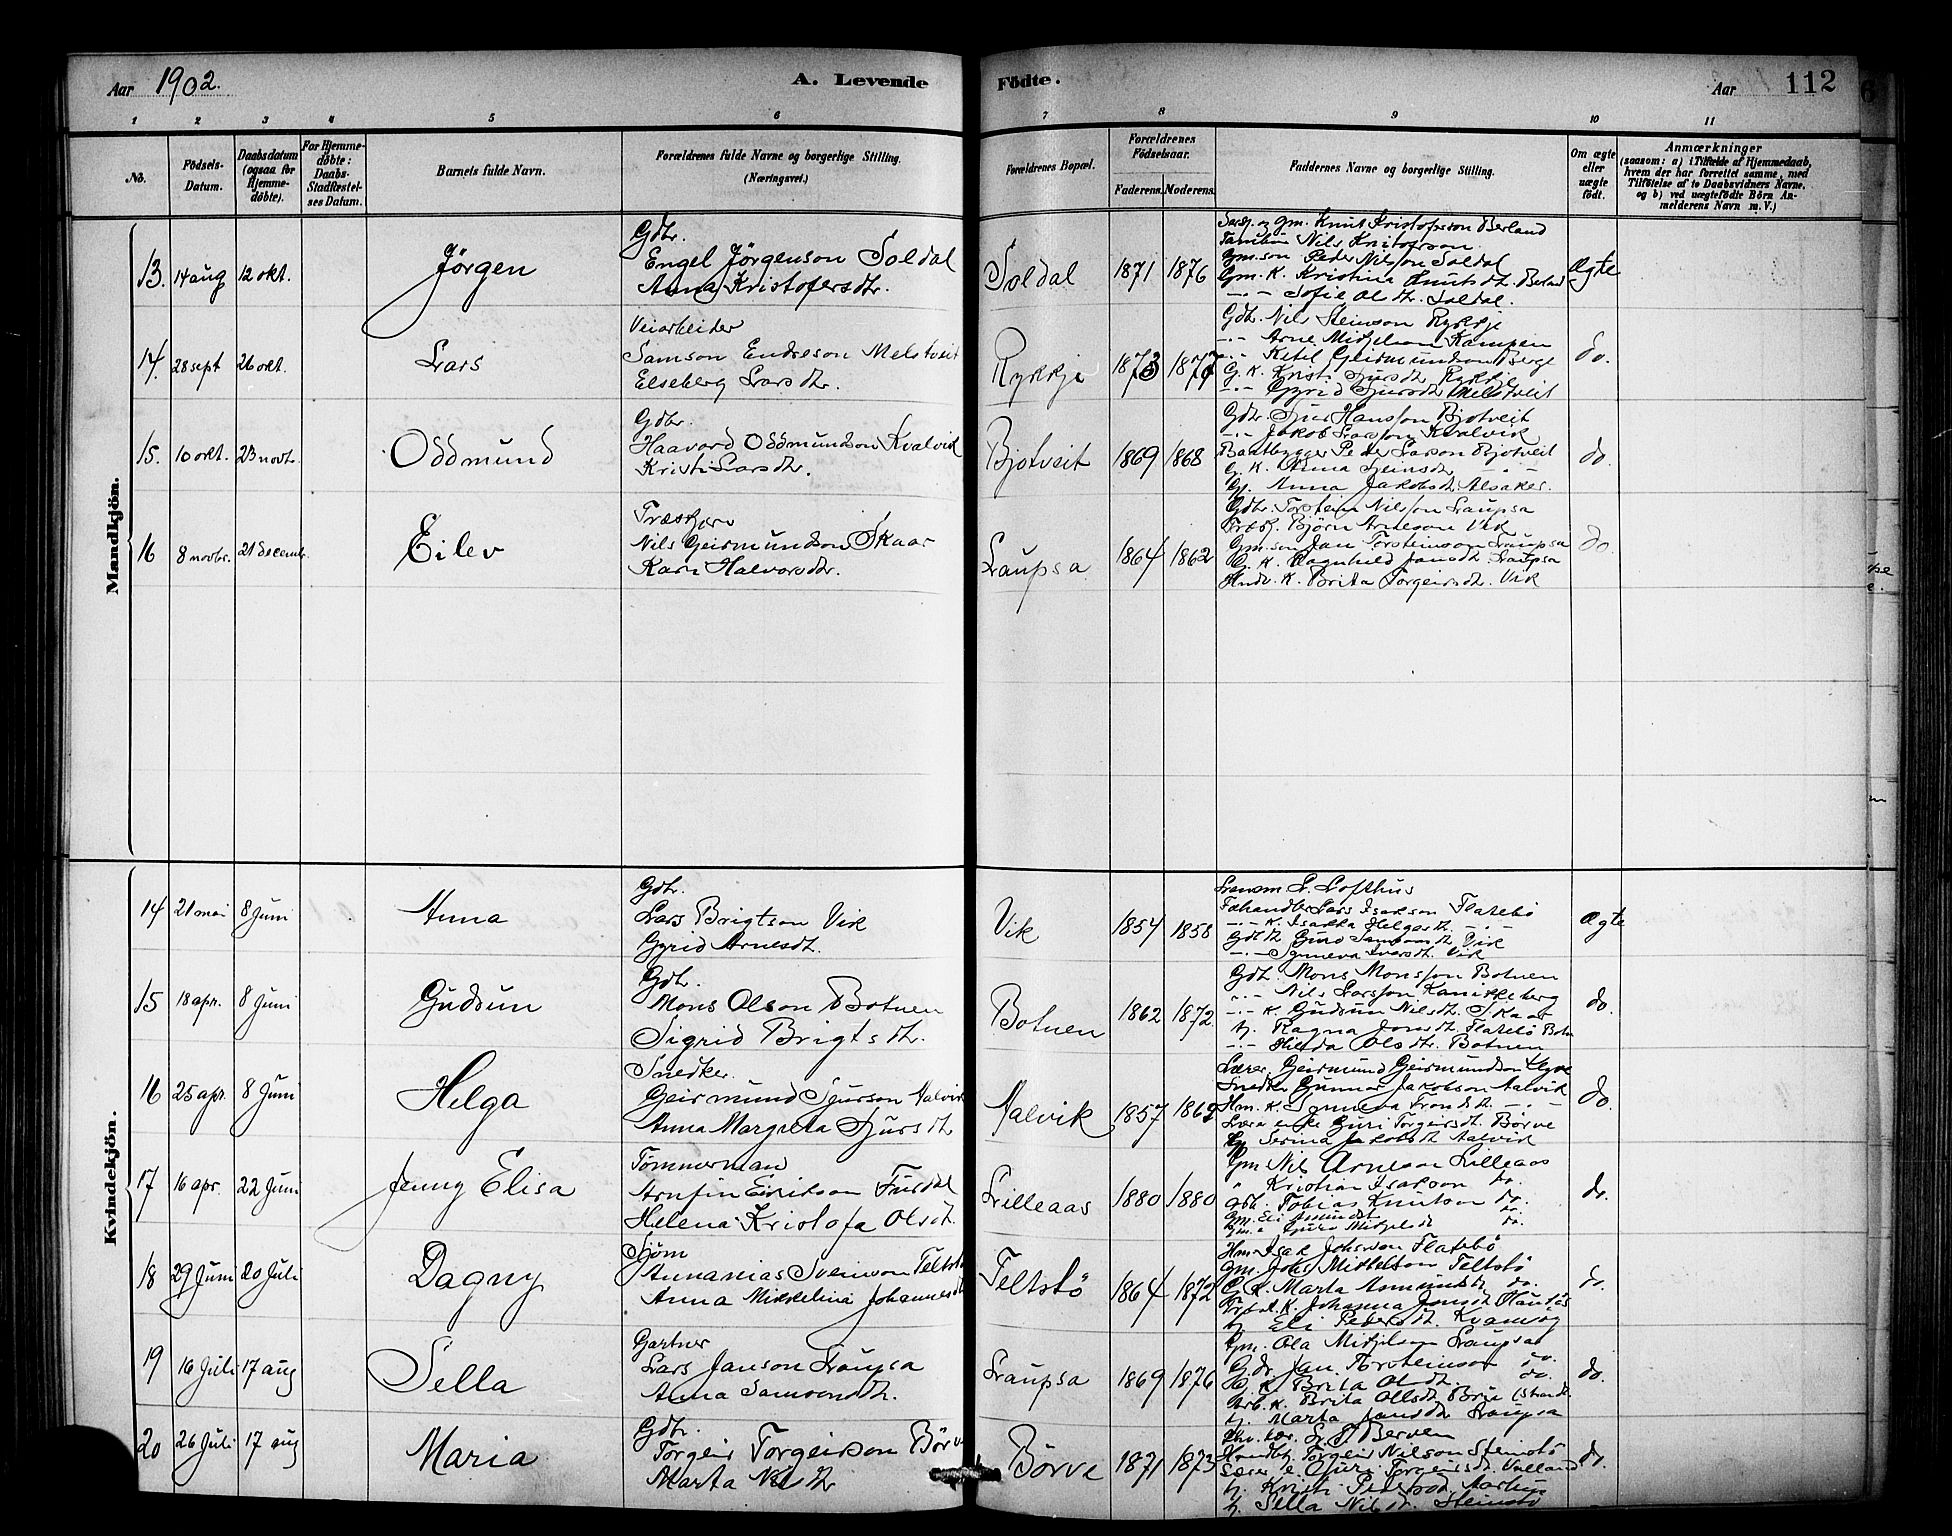 Aar 1902.
A. Levende
Födte.
Aar
112
1 2 3 4 5 6 7 8 9 10 11
No.
Födsels-Datum.
Daabsdatum (ogsaa for Hjemme-döbte).
For Hjemme-döbte: Daabs-Stadfæstel-ses Datum.
Barnets fulde Navn.
Forældrenes fulde Navne og borgerlige Stilling.
(Næringsvei.)
Forældrenes Bopæl.
Forældrenes Födselsaar.
Faderens. Moderens.
Faddernes Navne og borgerlige Stilling.
Om ægte eller uægte födt.
Anmærkninger
(saasom: a) i Tilfælde af Hjemmedaab,
hvem der har forrettet samme, med
Tilföielse af to Daabsvidners Navne,
og b) ved uægtefödte Börn An-
melderens Navn m. V.)
Mandkjön.
13. 14 aug 12 okt. Jörgen
Gdbr.
Engel Jörgenson Soldal
Anna Kristofersdtr.
Soldal 1871 1876
gm. Knut Kristoferson Berland
Nils Kristoferson
Gm.son Peder Nilsson Soldal
Gm. K. Kristina Knutsdt. Berland
-"- Sofie Olsdtr. Soldal.
Ægte
14. 28 sept 26 okt. Lars
Veiarbeider
Samson Endreson Melstveit
Elseberg Larsdtr.
Rykkje 1873 1877
Gdbr. Nils Steinson Rykkje
-"- Arne Midtjelson Kampen
-"- Ketil Geirmundson Berge
G. K. Kristi Sjursdt Rykkje
-"- Gyrid Sjursdtr Melstveit
do.
15. 10 okt. 23 novbr. Oddmund
Gdbr.
Haavard Oddmundson Kvalvik
Kristi Larsdtr.
Bjotveit 1869 1868
Gdbr. Sjur Hansson Bjotveit
-"- Jakob Larsson Kvalvik
Baatbygger Peder Larson Bjotveit
G. K. Anna -"-
Gj. Anna Jakobsdt. Alsaker.
do.
16 8 novbr. 21 decemb. Eilev
Træskjær
Nils Geirmundson Skaar
Kari Halvorsdtr.
Laupsa 1864 1862
Gdbr. Torstein Nilsson Laupsa
Træskj. Björn Arneson Vik
Gm.son Jan Torsteinson Laupsa
G. K. Ragnhild Jansdt. Laupsa
K. Brita Torgeirsdt. Vik
do
Kvindekjön.
14 21 mai 8 Juni Anna
Gdbr.
Lars Brigtson Vik
Gyrid Arnesdt.
Vik 1854 1858
Lensm. L. Lofthus
Fæhandler Lars Isakson Flatebö
-"- K. Isakka Helgesdt. -"-
Guro Samsonsdt. Vik
-"- Synneva Ivarsdt. Vik
Ægte
15 18 apr. 8 Juni Gudrun
Gdb.
Mons Olson Botnen
Sigrid Brigtsdt.
Botnen 1862 1872
Gdb. Mons Monsson Botnen
-"- Nils Larsson Kanikkeberg
-"- K. Gudrun Nilsdt. Skaar
Gj. Ragna Jonsdt. Flatebö Botn
-"- Hilda Olsdtr. Botnen
do.
16 25 apr. 8 Juni Helga
Snedker.
Geirmund Sjurson Aalvik
Anna Margreta Sjursdt
Aalvik 1857 1862
Lærer Geirmund Geirmundson
Snedker Gunnar Jakobson Aalvik
Hm. K. Synneva Trondsdt. -"-
Lærerenke Guri Torgeirsdt. Börve
Gj. Serina Jakobsdt Aalvik
do.
17 16 apr. 22 Juni Jenny Elisa
Tömmerman
Arnfin Erikson Fusdal
Helena Kristofa Olsdt.
Lilleaas 1880 1880
Gm. Nils Arneson Lilleaas
" Kristian Isakson do.
Gdb. Tobias Knutson do.
Gm. Eli Asmundsdt do.
Guro Midtjelsdt do.
do.
18 29 Juni 20 Juli Dagny
Sjöm
Annanias Sveinson Teltstö
Anna Mikkelina Johannesdt
Teltstö 1864 1872
Hm. Isak Johsson Flatebö
Gm. Johs Mikkelson Teltstö
G. K. Marta Asmundsdt. do.
K. Johanna Jonsdt.
Gj. Eli Pedersdt. Kvamsög
do.
19 16 Juli 17 aug Sella
Gartner
Lars Janson Laupsa
Anna Samsonsdtr.
Laupsa 1869 1876
Gm. Ola Midtjelson Laupsa
Gdr. Jan Torsteinson do.
G. K. Brita Olsdt. do.
K. Brita Olsdt Börve
Gj. Marta Jansdtr Laupsa
do.
20 26 Juli 17 aug Maria
Gdbr.
Torgeir Torgeirson Börve
Marta Nilsdtr
Börve 1871 1873
Berven
Torgeir Nilson Steinstö
Lærer e. Guri Torgeirsdt.
Gj. Kristi Pedersdt. Aarhus
Gj. Sella Nilsdt. Steinstö
do.